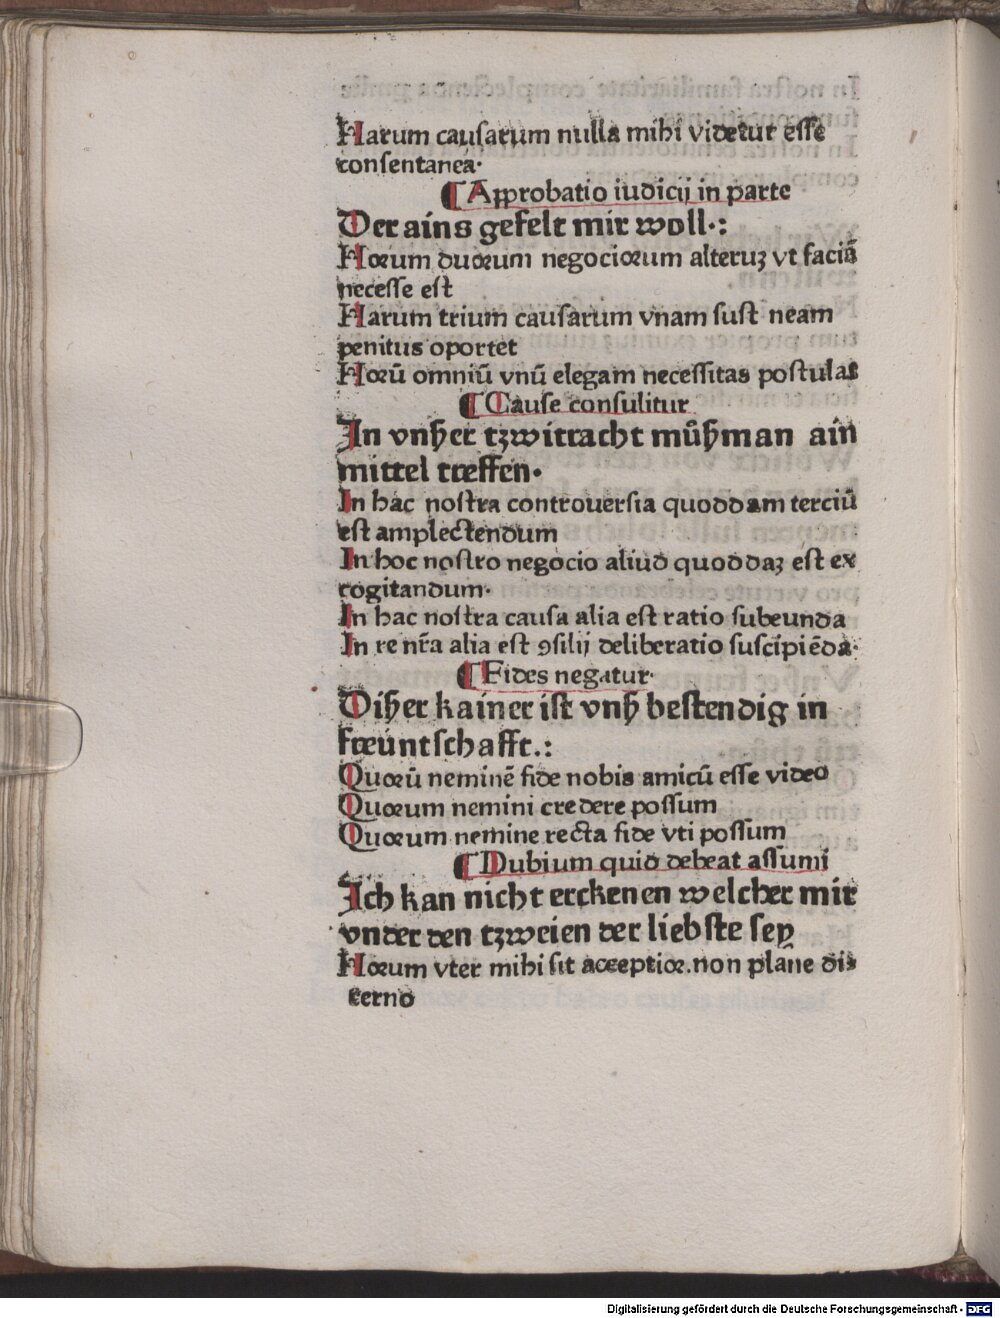 Harum causarum nulla mihi videtur esse
consentanea·
¶ Approbatio iudicij in parte
Der ains gefelt mir woll·:
Horum duorum negociorum alteruꝫ vt faciā
necesse est
Harum trium causarum vnam sust neam
penitus oportet
Horū omniū vnū elegam necessitas postulat
¶ Cause consulitur
In vnßer tzwitracht můßman ain
mittel treffen·
In hac nostra controuersia quoddam terciū
est amplectendum
In hoc nostro negocio aliud quoddaꝫ est ex
cogitandum·
In hac nostra causa alia est ratio subeunda
In re nr̄a alia est ꝯsilij deliberatio suscipiēda·
¶ Fides negatur·
Dißer kainer ist vnß bestendig in
freuntschafft.:
Quorū neminē fide nobis amicū esse video
Quorum nemini credere possum
Quorum nemine recta fide vti possum
¶ Dubium quid debeat assumi
Ich kan nicht erckenen welcher mir
vnder den tzweien der liebste sey
Horum vter mihi sit acceptior.non plane dis
cerno
Digitalisierung gefördert durch die Deutsche Forschungsgemeinschaft - DFG